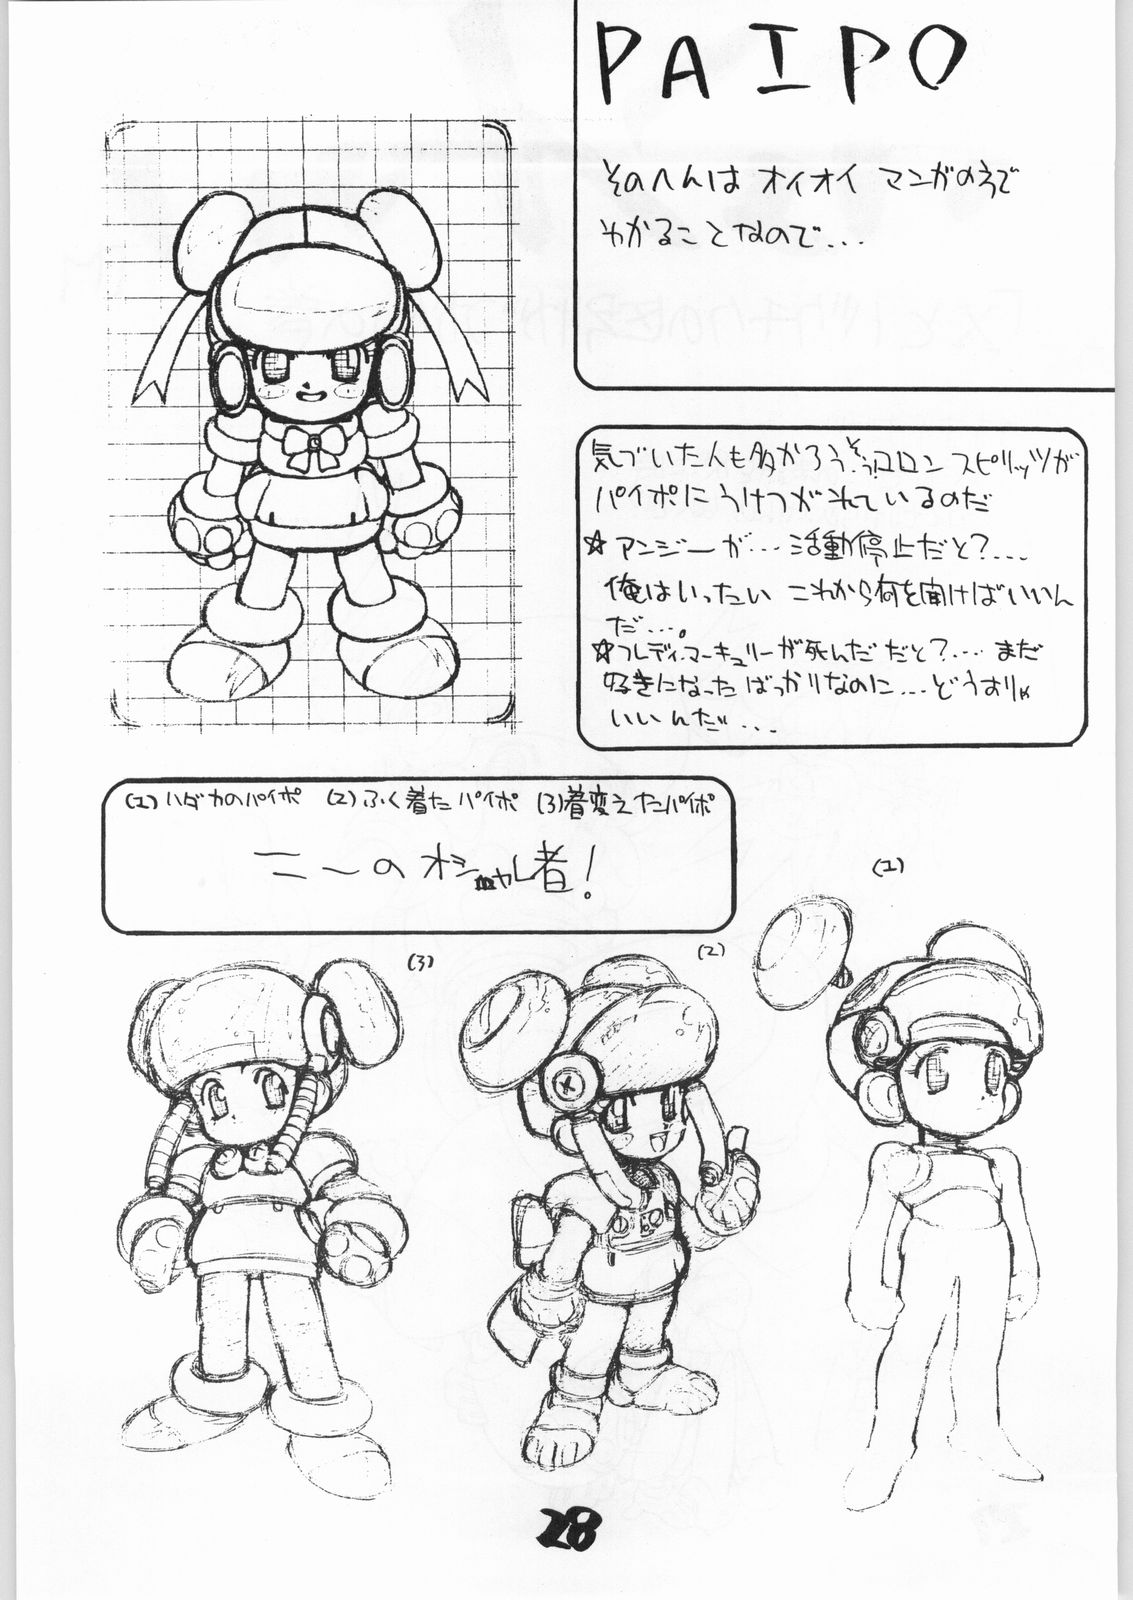 PAIPO
そのへんは オイオイ マンガの方で
わかることなので...
気づいた人も多かろう、そう!コロン スピリッツが
パイポにうけつがれているのだ
☆アンジーが... 活動停止だと?....
俺はいったい これから何を聞けばいいん
だ....。
☆フレディ・マーキュリーが死んだ だと?.... まだ
好きになった ばっかりなのに... どうすりゃ
いいんだ...
(1)ハダカのパイポ (2)ふく着たパイポ (3)着変えたパイポ
こーの オシャレ者!
(1)
(3)
(2)
28